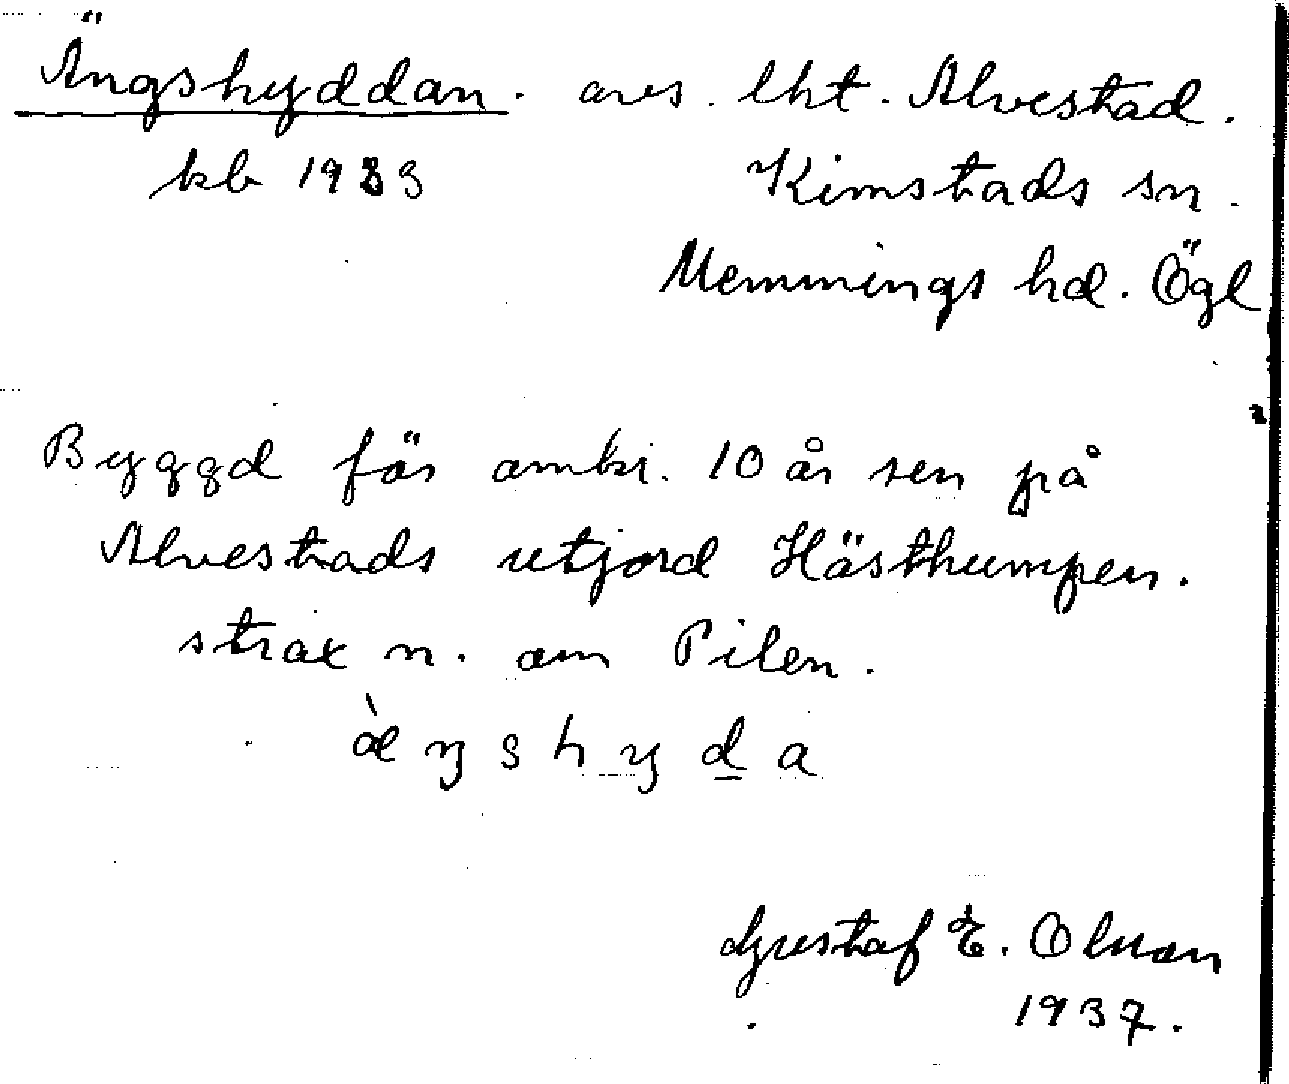 Ängshyddan. avs. lht. Alvestad.
kb 1933 Kimstads sn.
Memmings hd. Ögl
Byggd för omkr. 10 år sen på
Alvestads utjord Hästhumpen.
strax n. om Pilen.
æ̀ŋshyḏa
Gustaf E. Olson
1937.